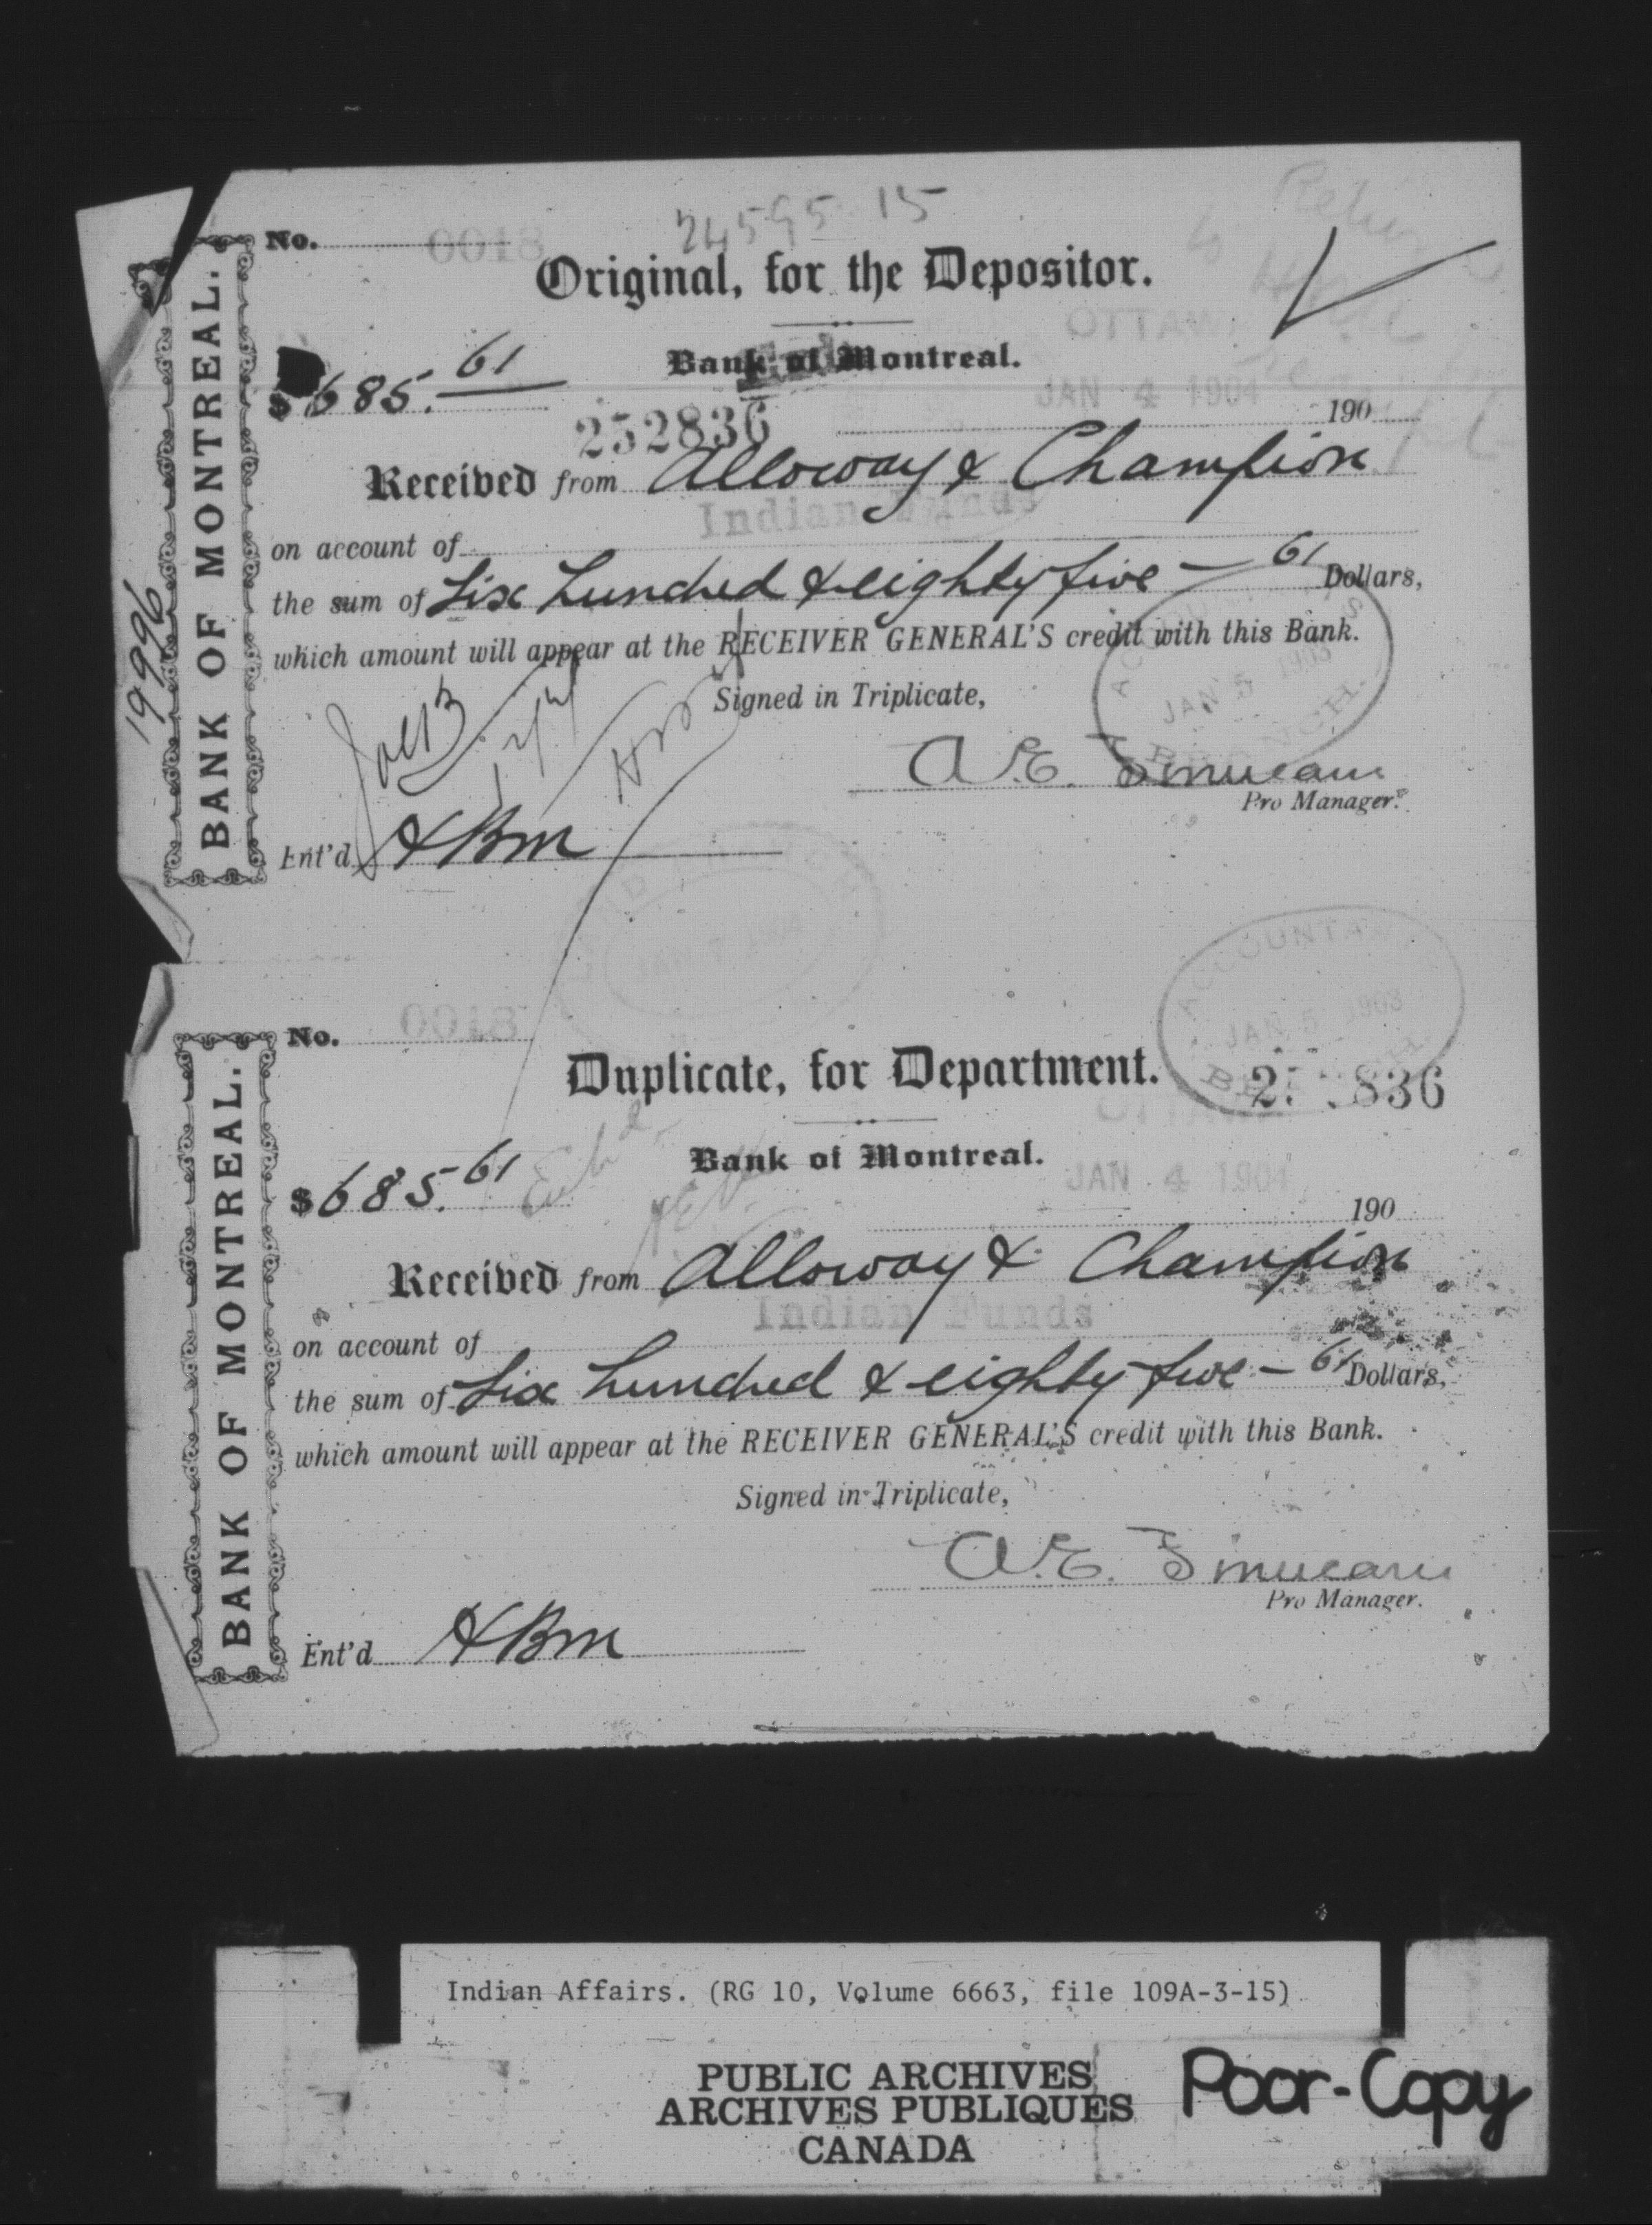 24595 15
No. 0018
Original, for the Depositor.
Bank of Montreal.
OTTAW
$685.61
JAN 4 1904
190
252836
Received from Alloway & Champion
Indian Funds
on account of
the sum of Six hundred & eighty five - 61 Dollars,
which amount will appear at the RECEIVER GENERAL'S credit with this Bank.
Signed in Triplicate,
JAN 5 1903
BRANCH
A.E.
Pro Manager.
Ent'd HBM
BANK OF MONTREAL.
19996
ACCOUNTANT
JAN 5 1903
No. 0018
Duplicate, for Department.
836
Bank of Montreal.
$685.61
JAN 4 1904
190
Received from Alloway & Champion
Indian Funds
on account of
the sum of Six hundred & eighty five - 61 Dollars,
which amount will appear at the RECEIVER GENERAL'S credit with this Bank.
Signed in Triplicate,
A.E.
Pro Manager.
Ent'd HBM
BANK OF MONTREAL.
Indian Affairs. (RG 10, Volume 6663, file 109A-3-15)
PUBLIC ARCHIVES
ARCHIVES PUBLIQUES
CANADA
Poor-Copy